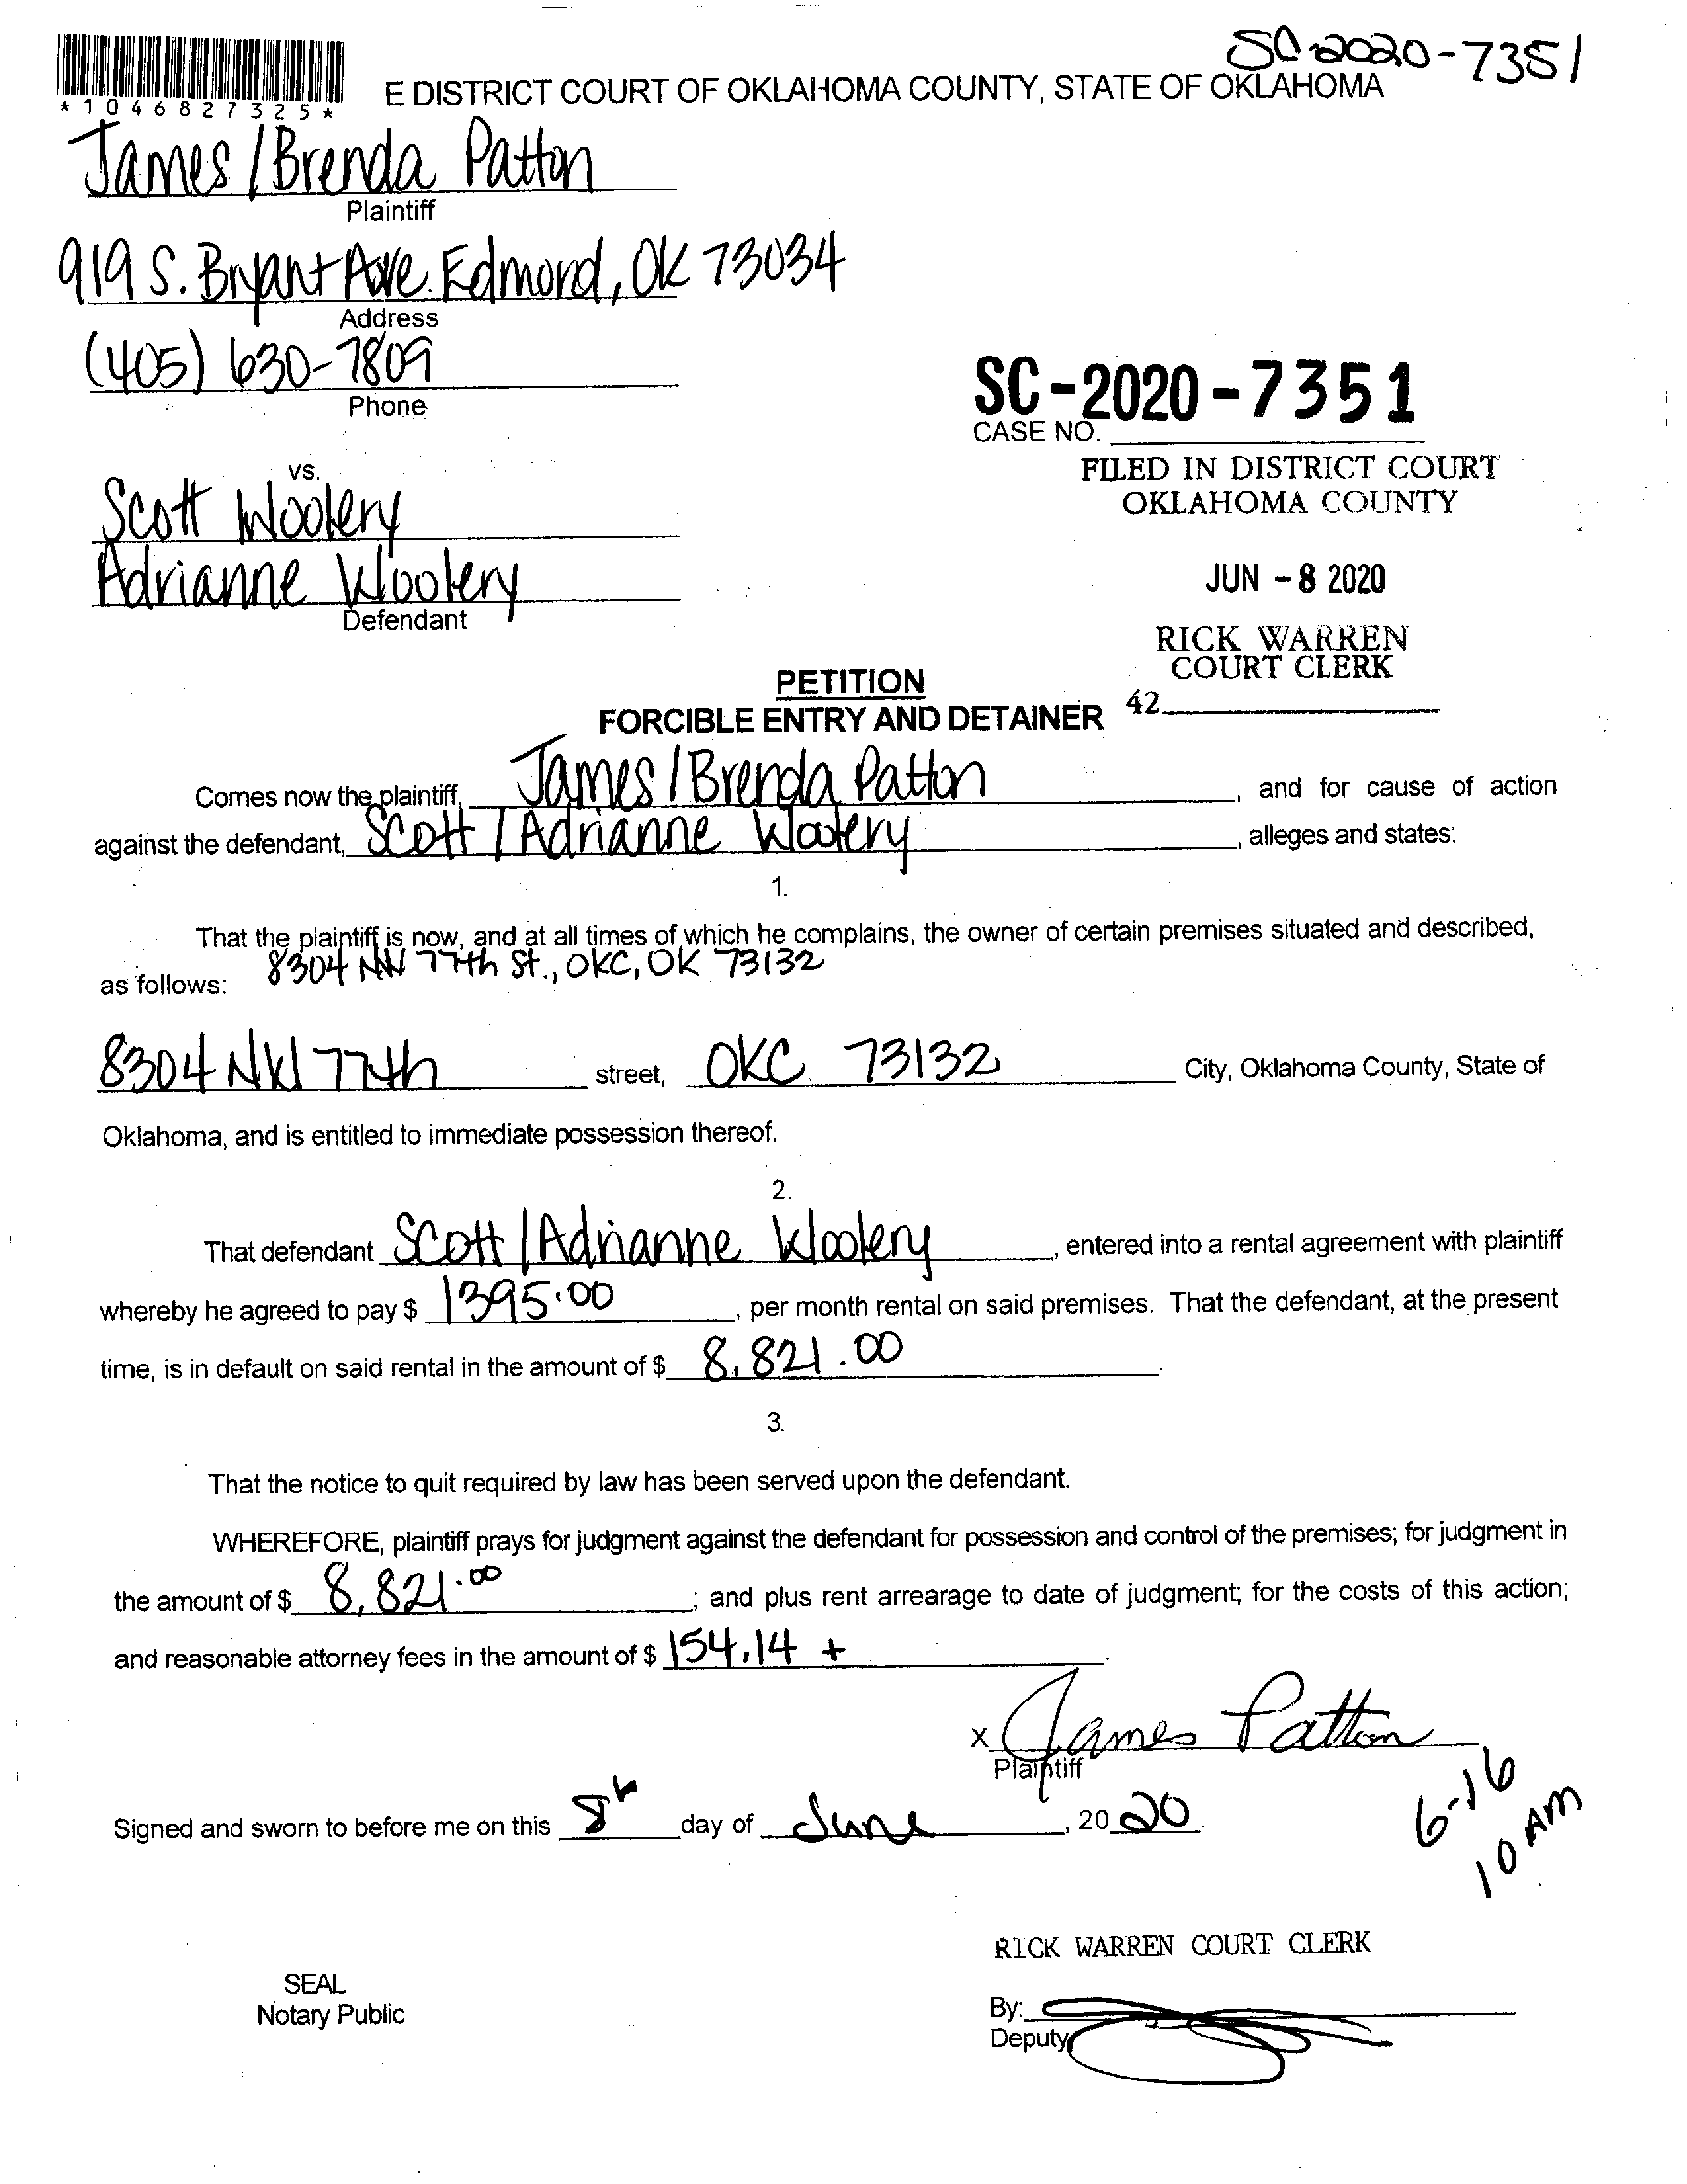 SC-2020-7351
*1046827325*
E DISTRICT COURT OF OKLAHOMA COUNTY, STATE OF OKLAHOMA
James / Brenda Patton
Plaintiff
919 S. Bryant Ave. Edmond, OK 73034
Address
(405) 630-7809
Phone
SC-2020-7351
CASE NO.
FILED IN DISTRICT COURT
OKLAHOMA COUNTY
JUN - 8 2020
RICK WARREN
COURT CLERK
42
vs.
Scott Woolery
Adrianne Woolery
Defendant
PETITION
FORCIBLE ENTRY AND DETAINER
Comes now the plaintiff, James / Brenda Patton, and for cause of action
against the defendant, Scott / Adrianne Woolery, alleges and states:
1.
That the plaintiff is now, and at all times of which he complains, the owner of certain premises situated and described,
as follows: 8304 NW 77th St., OKC, OK 73132
8304 NW 77th street, OKC 73132 City, Oklahoma County, State of
Oklahoma, and is entitled to immediate possession thereof.
2.
That defendant Scott / Adrianne Woolery, entered into a rental agreement with plaintiff
whereby he agreed to pay $ 1395.00, per month rental on said premises. That the defendant, at the present
time, is in default on said rental in the amount of $ 8,821.00.
3.
That the notice to quit required by law has been served upon the defendant.
WHEREFORE, plaintiff prays for judgment against the defendant for possession and control of the premises; for judgment in
the amount of $ 8,821.00; and plus rent arrearage to date of judgment; for the costs of this action;
and reasonable attorney fees in the amount of $ 154.14 +.
x James Patton
Plaintiff
Signed and sworn to before me on this 8th day of June, 2020.
6-16
10 AM
RICK WARREN COURT CLERK
SEAL
Notary Public
By:
Deputy